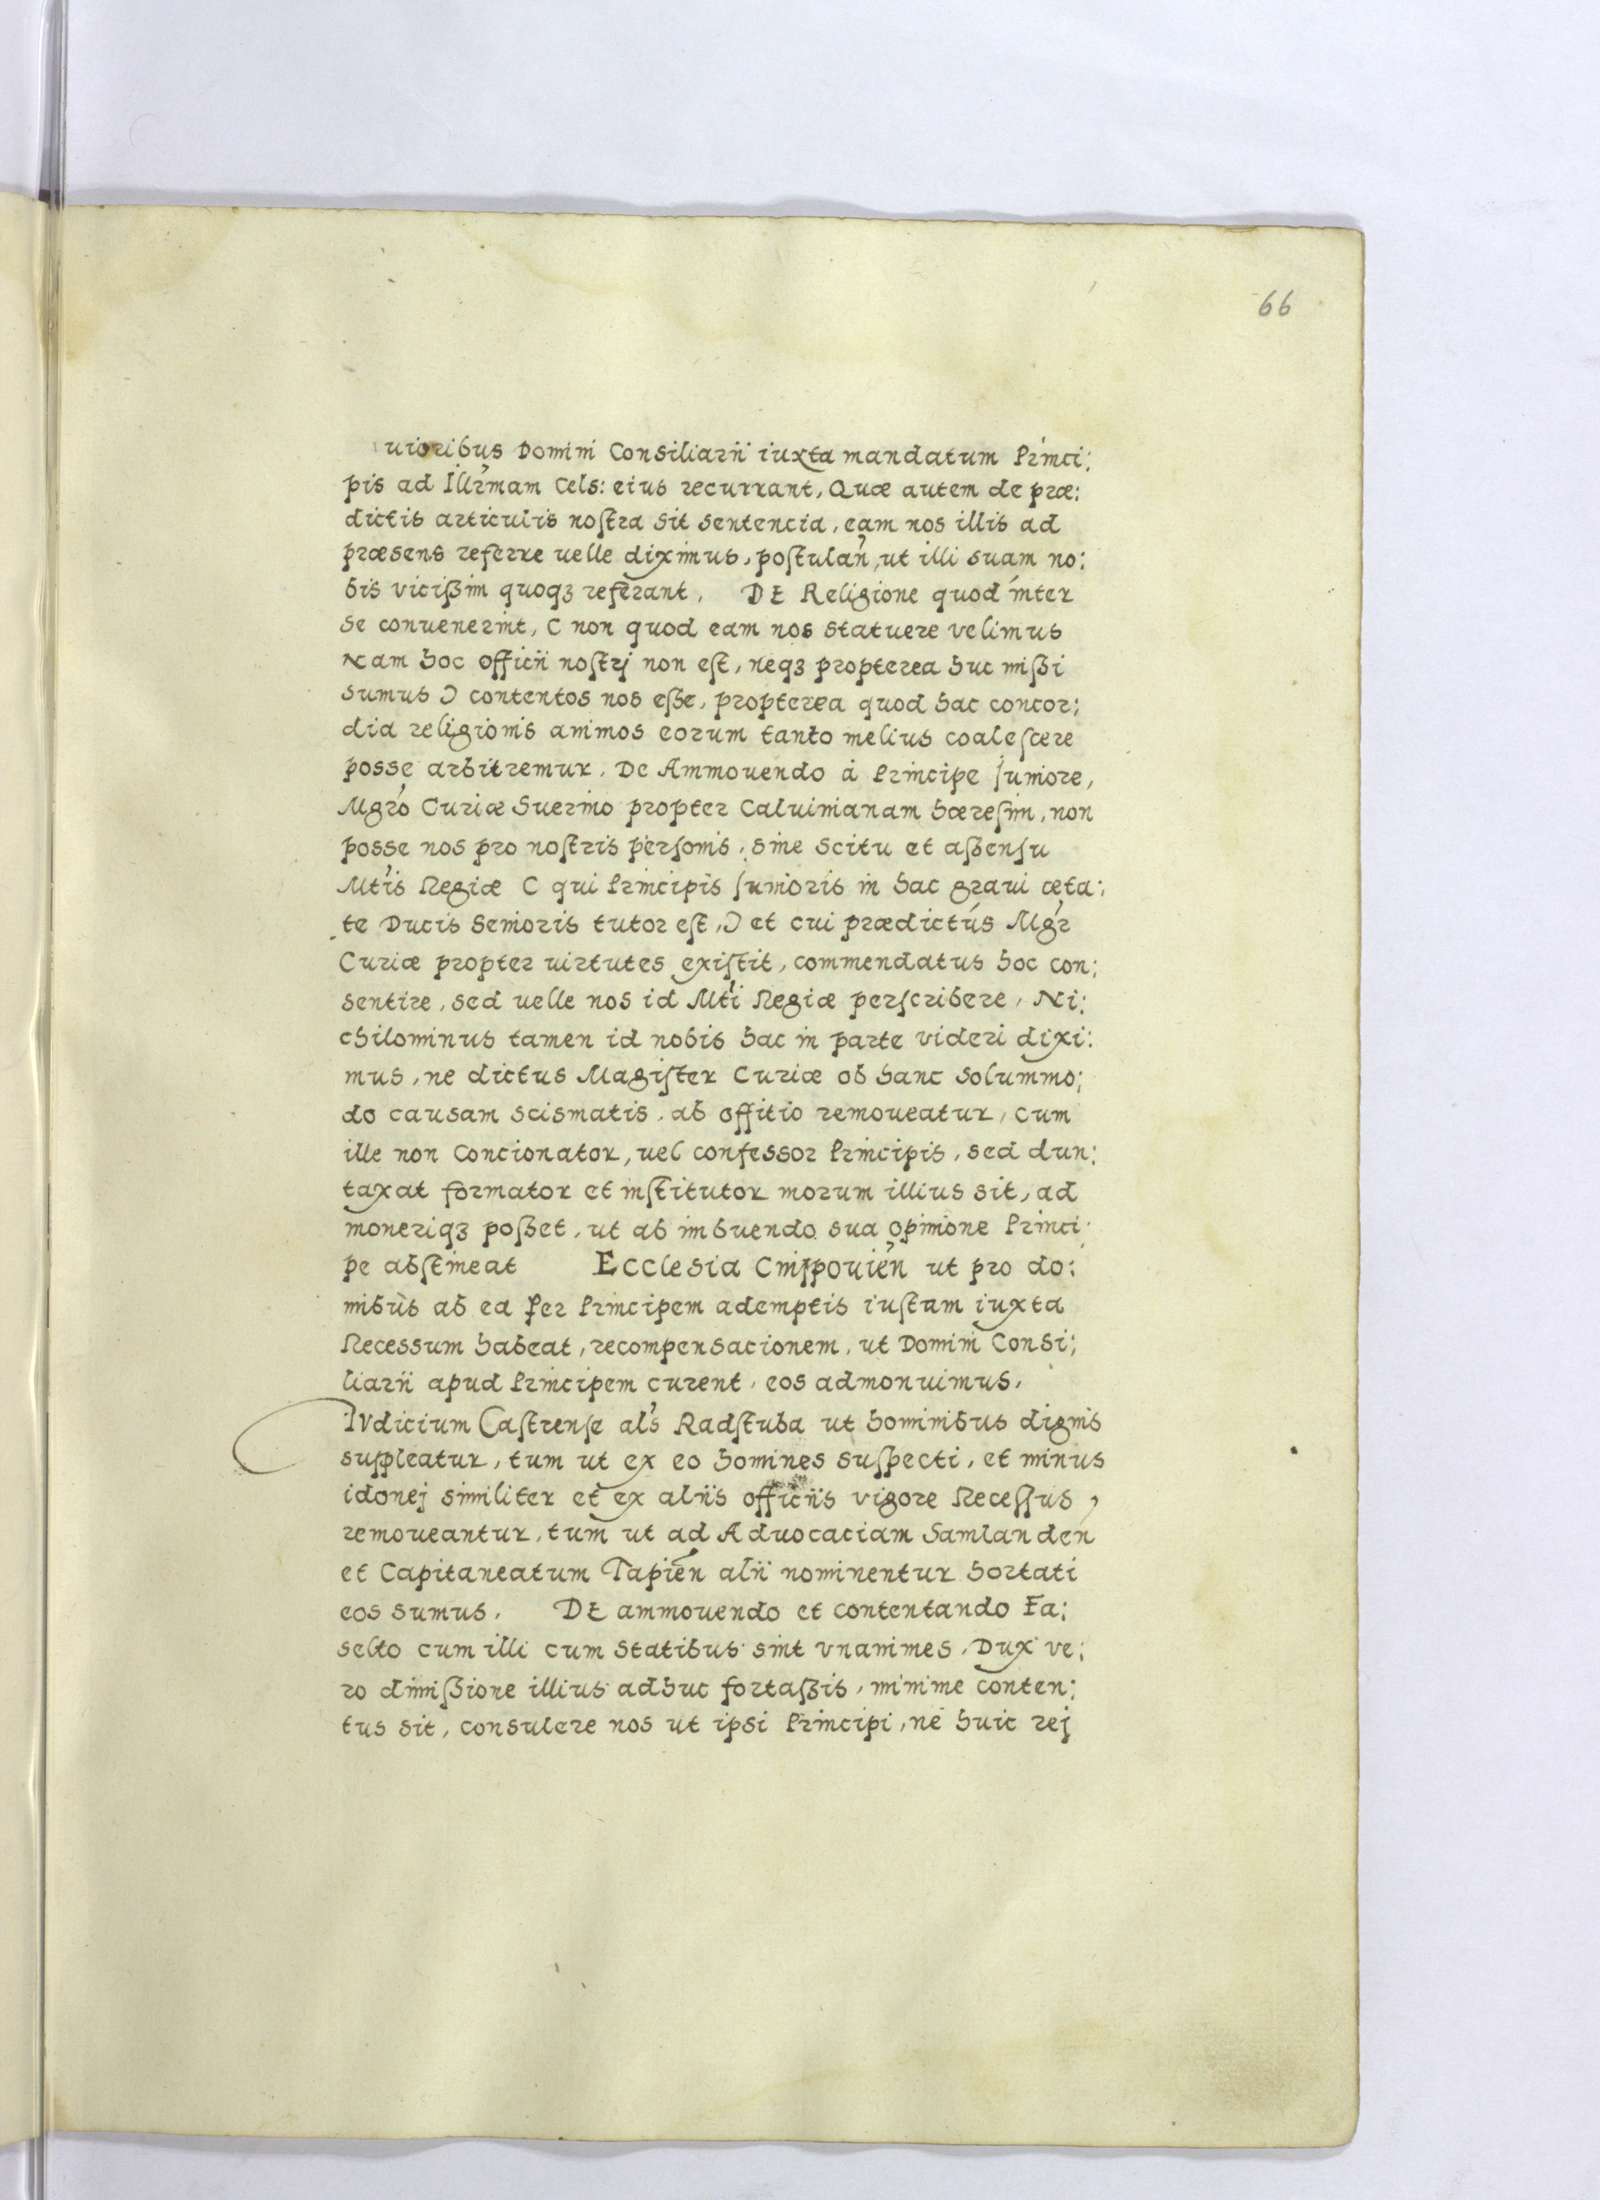 66
uioribus Domini Consiliarii iuxta mandatum Princi:
pis ad Illr̃mam Cels: eius recurrant, Quæ autem de præ:
dictis articulis noſtra sit sentencia, eam nos illis ad
præsens referre uelle diximus, poſtulañ, ut illi suam no:
bis viciſsim quoqꝫ referant, DE Religione quod inter
se conuenerint, ( non quod eam nos statuere velimus
Nam hoc officii noſtrj non eſt, neqꝫ propterea huc miſsi
sumus ) contentos nos eſse, propterea quod hac concor:
dia religionis animos eorum tanto melius coaleſcere
posse arbitremur. De Ammouendo á Principe Juniore,
Mgrõ Curiæ Suerino propter Caluinianam hæreſim, non
posse nos pro noſtris perſonis, sine scitu et aſsenſu
Mtĩs Regiæ ( qui Principis Junioris in hac graui æta:
te Ducis Senioris tutor eſt, ) et cui prædictús Mgr̃
Curiæ propter uirtutes exiſtit, commendatus hoc con:
sentire, sed uelle nos id Mtĩ Regiæ perſcribere, Ni:
chilominus tamen id nobis hac in parte videri dixi:
mus, ne dictus Magiſter Curiæ ob hanc solummo:
do causam scismatis, ab offitio remoueatur, cum
ille non Concionator, uel confessor Principis, sed dun:
taxat formator et inſtitutor morum illius sit, ad
moneriqꝫ poſset, ut ab imbuendo sua opinione Princi:
pe abſtineat Ecclesia Cniſpouieñ ut pro do:
mibùs ab ea per Principem ademptis iuſtam iuxta
Recessum habeat, recompensacionem, ut Domini Consi:
liarii apud Principem curent, eos admonuimus,
IVdicium Caſtrenſe als̃ Radſtuba ut hominibus dignis
suppleatur, tum ut ex eo homines suſpecti, et minus
idonej similiter et ex aliis officiis vigore Receſſus,
remoueantur, tum ut ad Aduocaciam Samlandeñ
et Capitaneatum Tapieñ alii nominentur hortati
eos sumus, DE ammouendo et contentando Fa:
selto cum illi cum statibus sint vnanimes, Dux ve:
ro dimiſsione illius adhuc fortaſsis, minime conten:
tus sit, consulere nos ut ipsi Principi, ne huic rej